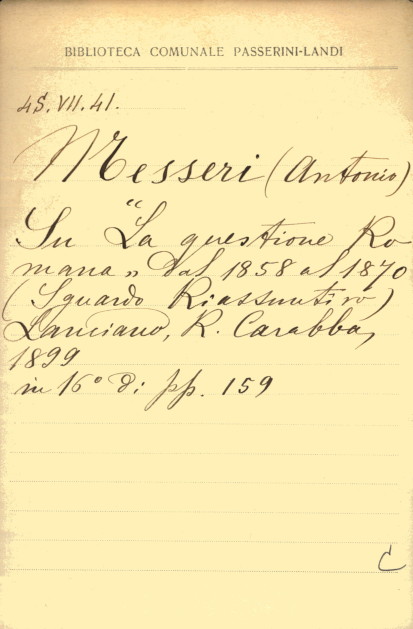 BIBLIOTECA COMUNALE PASSERINI-LANDI
4S. VII. 41.
Messeri (Antonio)
Su "La questione Ro
mana„ dal 1858 al 1870
(Sguardo Riassuntivo)
Lanciano, R. Carabba,
1899
in 16° di pp. 159
C